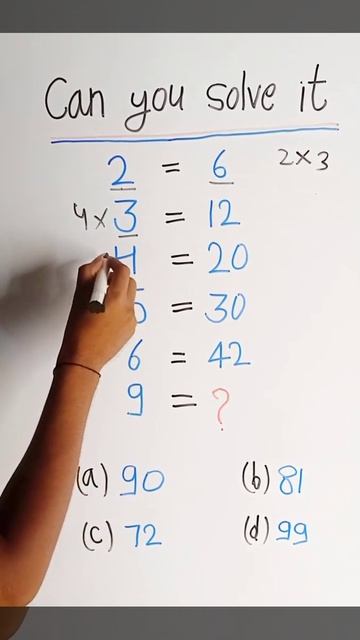 Can you solve it
2 = 6 2×3
4×3 = 12
4 = 20
5 = 30
6 = 42
9 = ?
(a) 90 (b) 81
(c) 72 (d) 99